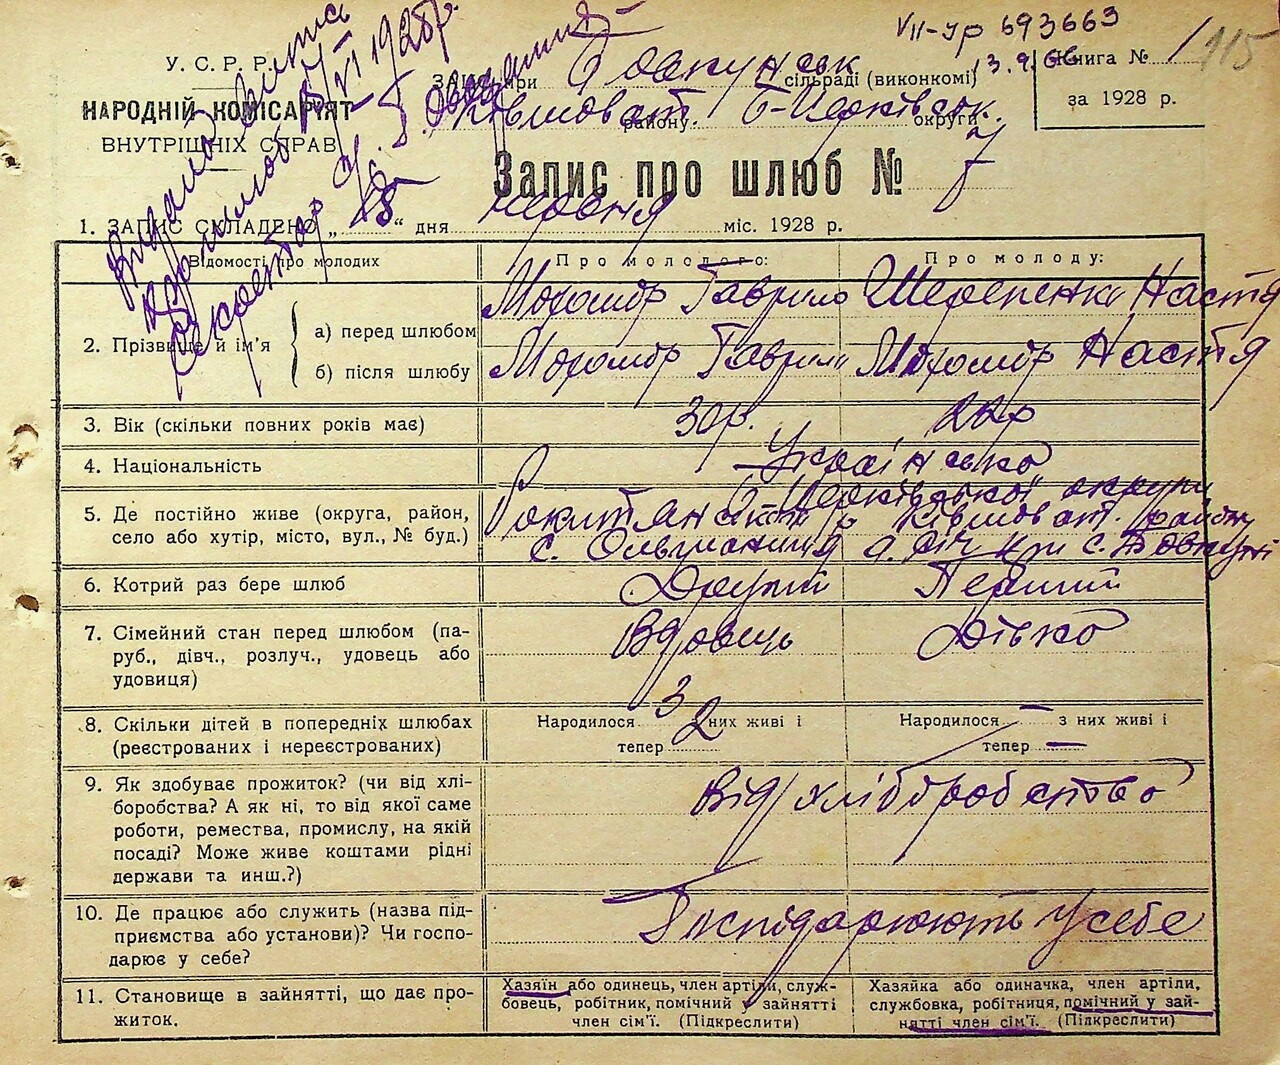 VII-ур 693663
13.9.66
115
У. С. Р. Р.
НАРОДНІЙ КОМІСАРІЯТ
ВНУТРІШНІХ СПРАВ
Запис при сільраді (виконкомі)
району Б-Церківськ. округи
Книга № 1
за 1928 р.
VI 1928р.
Запис про шлюб № 7
1. ЗАПИС СКЛАДЕНО „ 18 “ дня червня міс. 1928 р.
Відомості про молодих
Про молодого:
Про молоду:
2. Прізвище й ім'я
а) перед шлюбом
Гаврило
Настя
б) після шлюбу
Гаврило
Настя
3. Вік (скільки повних років має)
30р.
22р
4. Національність
Українсько
5. Де постійно живе (округа, район,
село або хутір, місто, вул., № буд.)
Б Церківської округи
району
с. Ольшаниця
6. Котрий раз бере шлюб
Другий
Первий
7. Сімейний стан перед шлюбом (па-
руб., дівч., розлуч., удовець або
удовиця)
Вдовець
Дівко
8. Скільки дітей в попередніх шлюбах
(реєстрованих і нереєстрованих)
Народилося 3 з них живі і
тепер 2
Народилося — з них живі і
тепер —
9. Як здобуває прожиток? (чи від хлі-
боробства? А як ні, то від якої саме
роботи, ремества, промислу, на якій
посаді? Може живе коштами рідні
держави та инш.?)
Від хліборобство
10. Де працює або служить (назва під-
приємства або установи)? Чи госпо-
дарює у себе?
Господарюють у себе
11. Становище в зайнятті, що дає про-
житок.
Хазяїн або одинець, член артіли, служ-
бовець, робітник, помічний у зайнятті
член сім'ї. (Підкреслити)
Хазяйка або одиначка, член артіли,
службовка, робітниця, помічний у зай-
нятті член сім'ї. (Підкреслити)